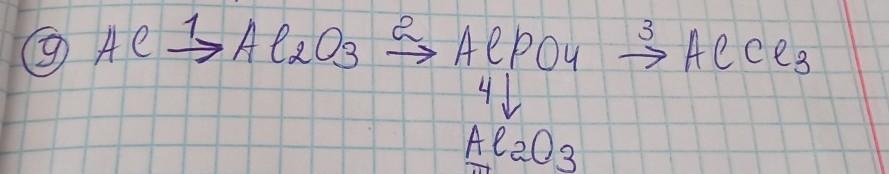 9) Al 1→ Al2O3 2→ AlPO4 3→ AlCl3
4↓
Al2O3